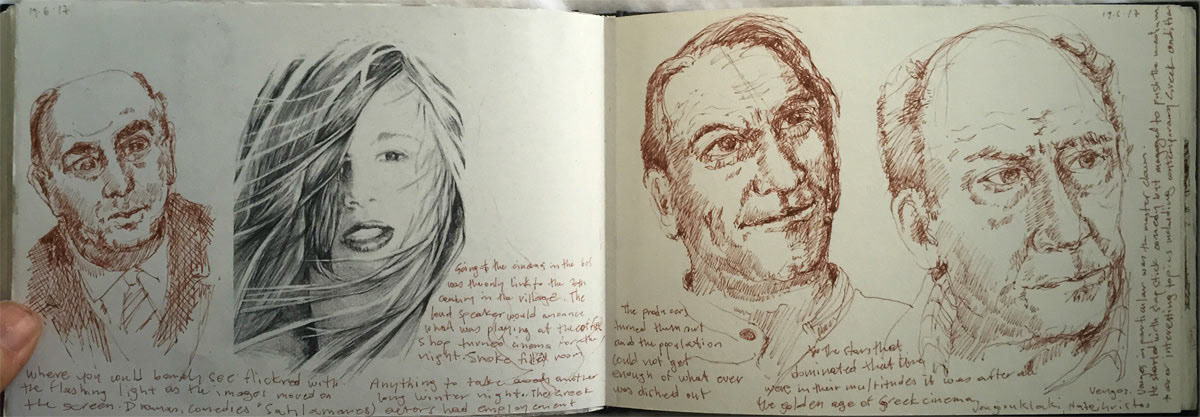 19·6·17
Going to the cinema in the 60s
was the only link to the 20th
century in the village. The
loud speaker would announce
what was playing at the coffee
shop turned cinema for the
night. Smoke filled room
where you would barely see flickred with
the flashing light as the images moved on
the screen. Dramas, comedies
Anything to take away another
long winter night. The Greek
actors had employment
19·6·17
The producers
turned them out
and the population
could not get
enough of what ever
was dished out
So the stars that
dominated that time
were in their multitudes it was after all
the golden age of Greek cinema
Vengos
Vengos in particular was the master clown.
He started with slapstick comedy but managed to push the medium
interesting topics including contemporary Greek condition